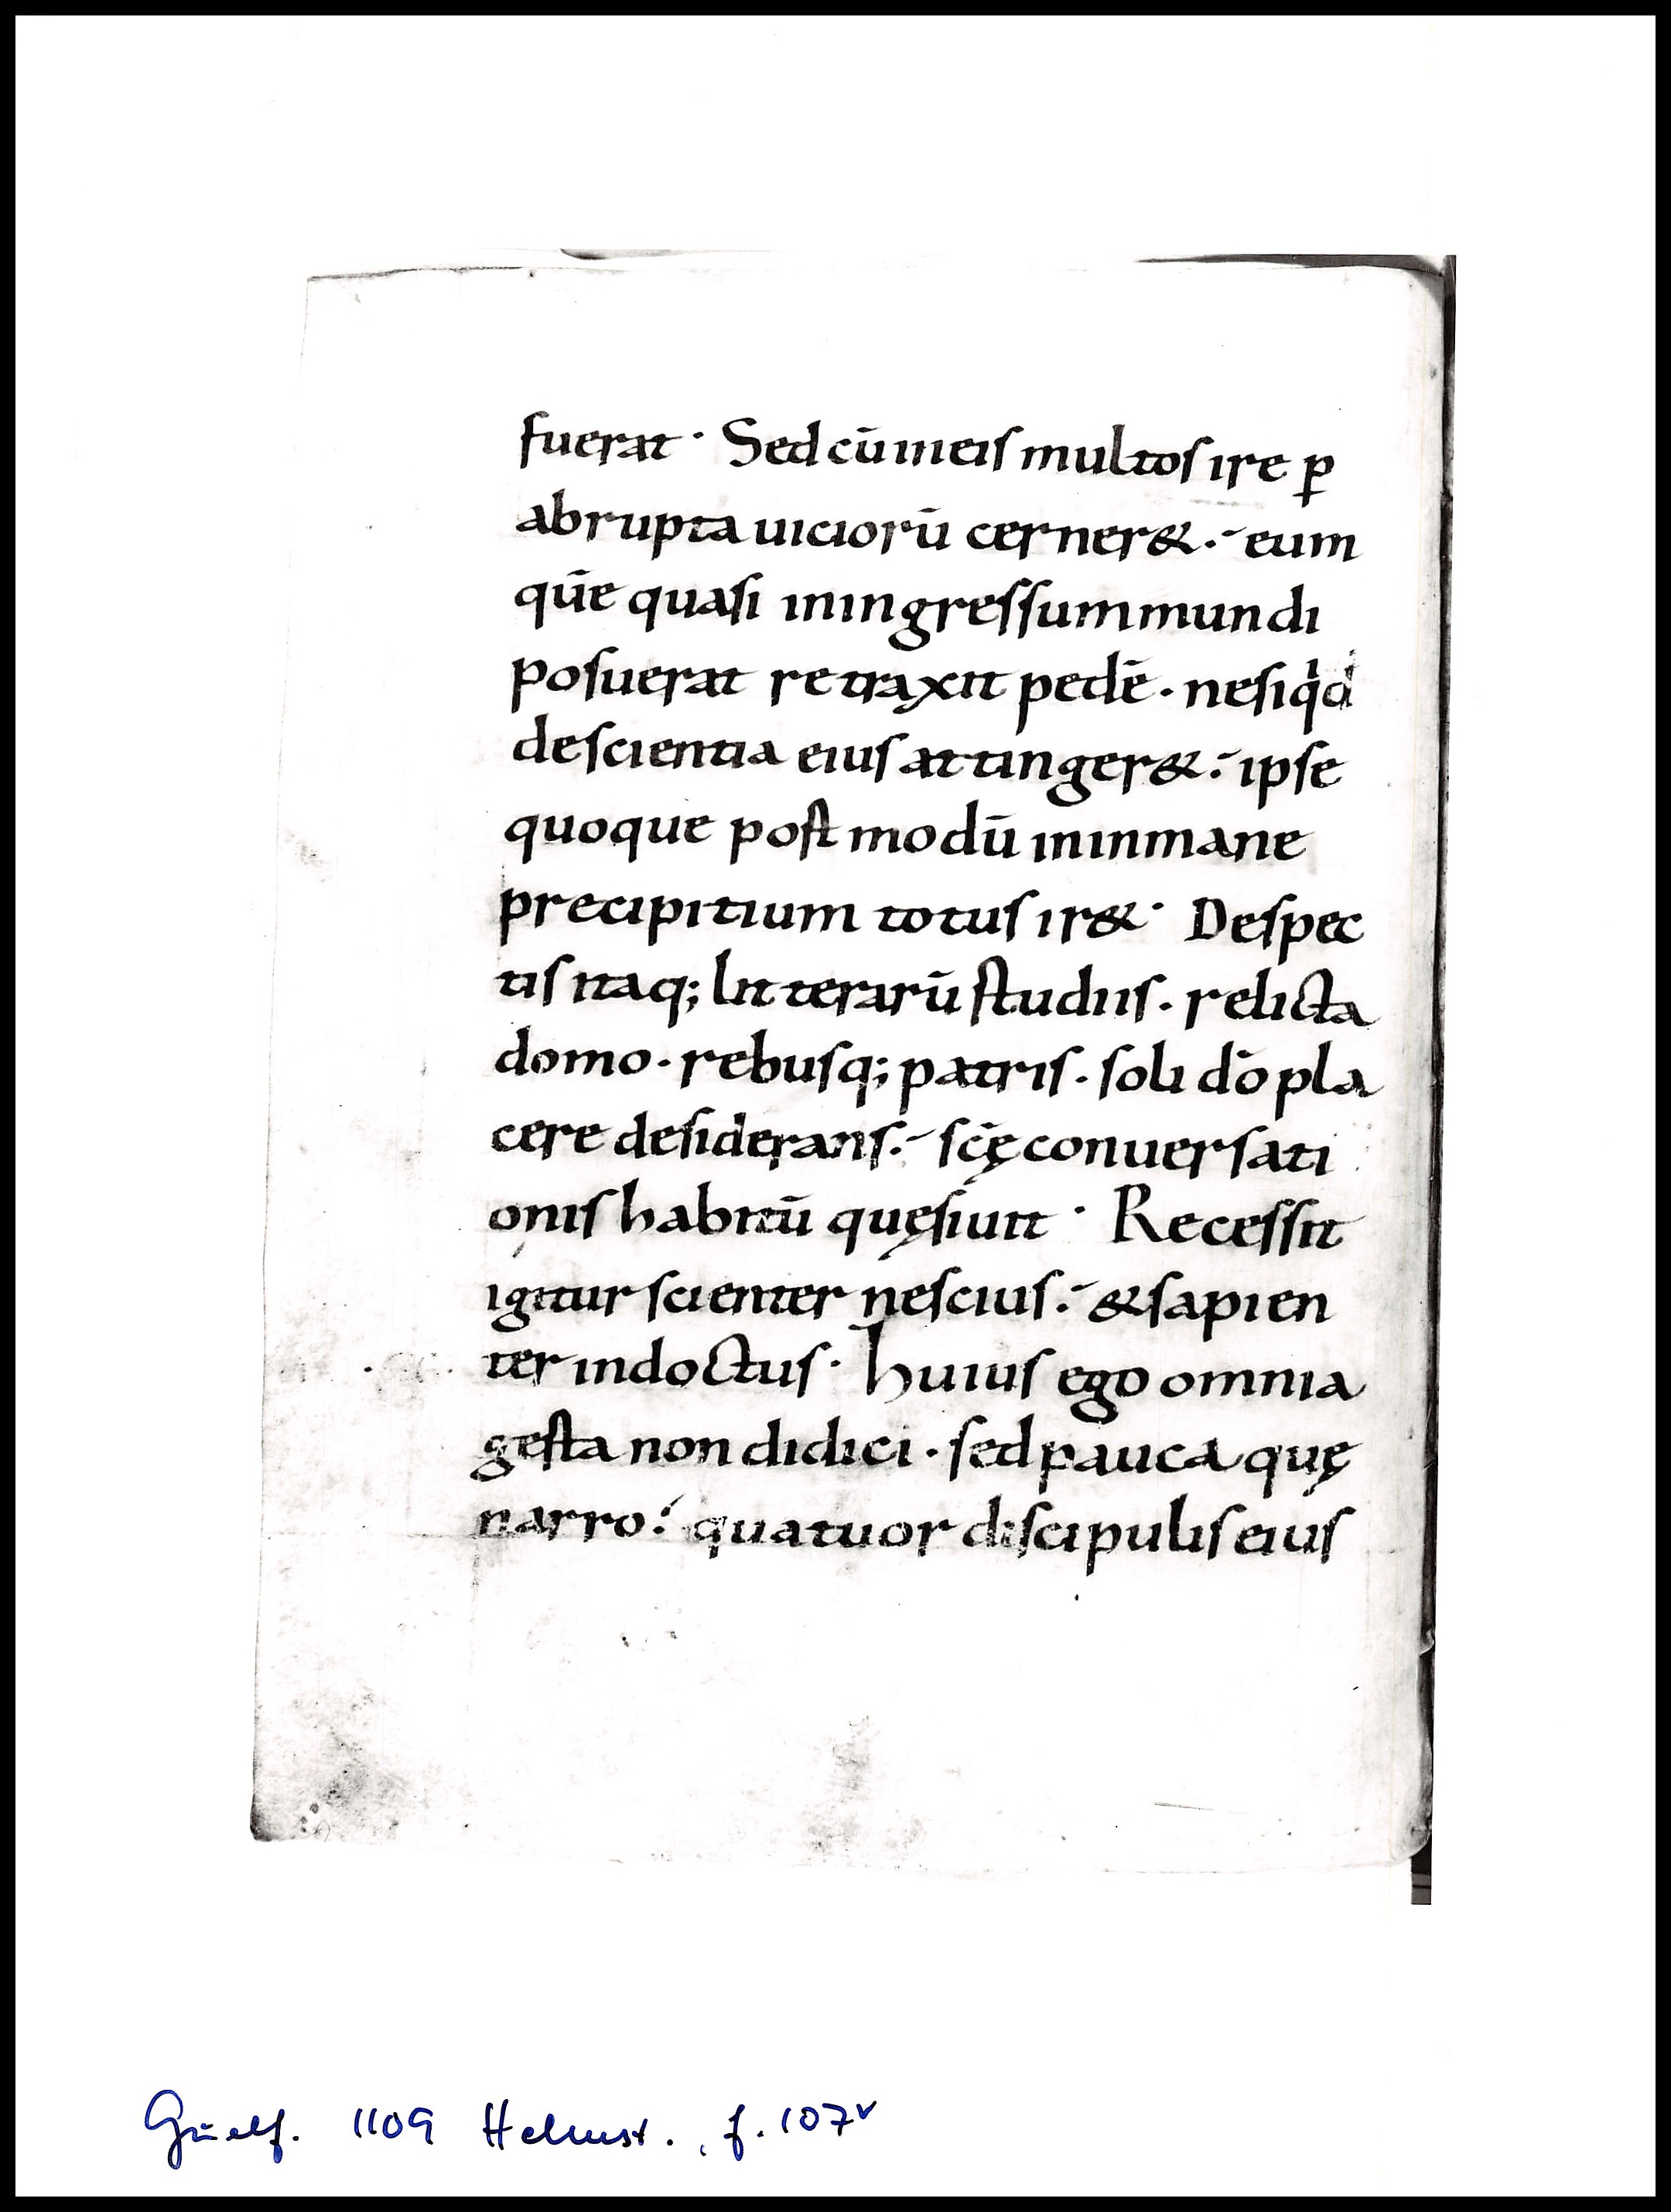 fuerat · Sed cū in eis multos ire ꝑ
abrupta uiciorū cerner& .- eum
qūe quasi in ingressum mundi
posuerat retraxit pedē . ne si qͥd
de scientia eius attinger& .- ipse
quoque post modū in inmane
precipitium totus ir& · Despec
tis itaq; litterarū studiis . relicta
domo . rebusq; patris . soli dō pla
cere desiderans .- sc̄ę conuersati
onis habitū quęsiuit · Recessit
igitur scienter nescius .- & sapien
ter indoctus · huius ego omnia
gesta non didici . sed pauca quę
narro .' quatuor discipulis eius
Guelf. 1109 Helmst., f. 107v